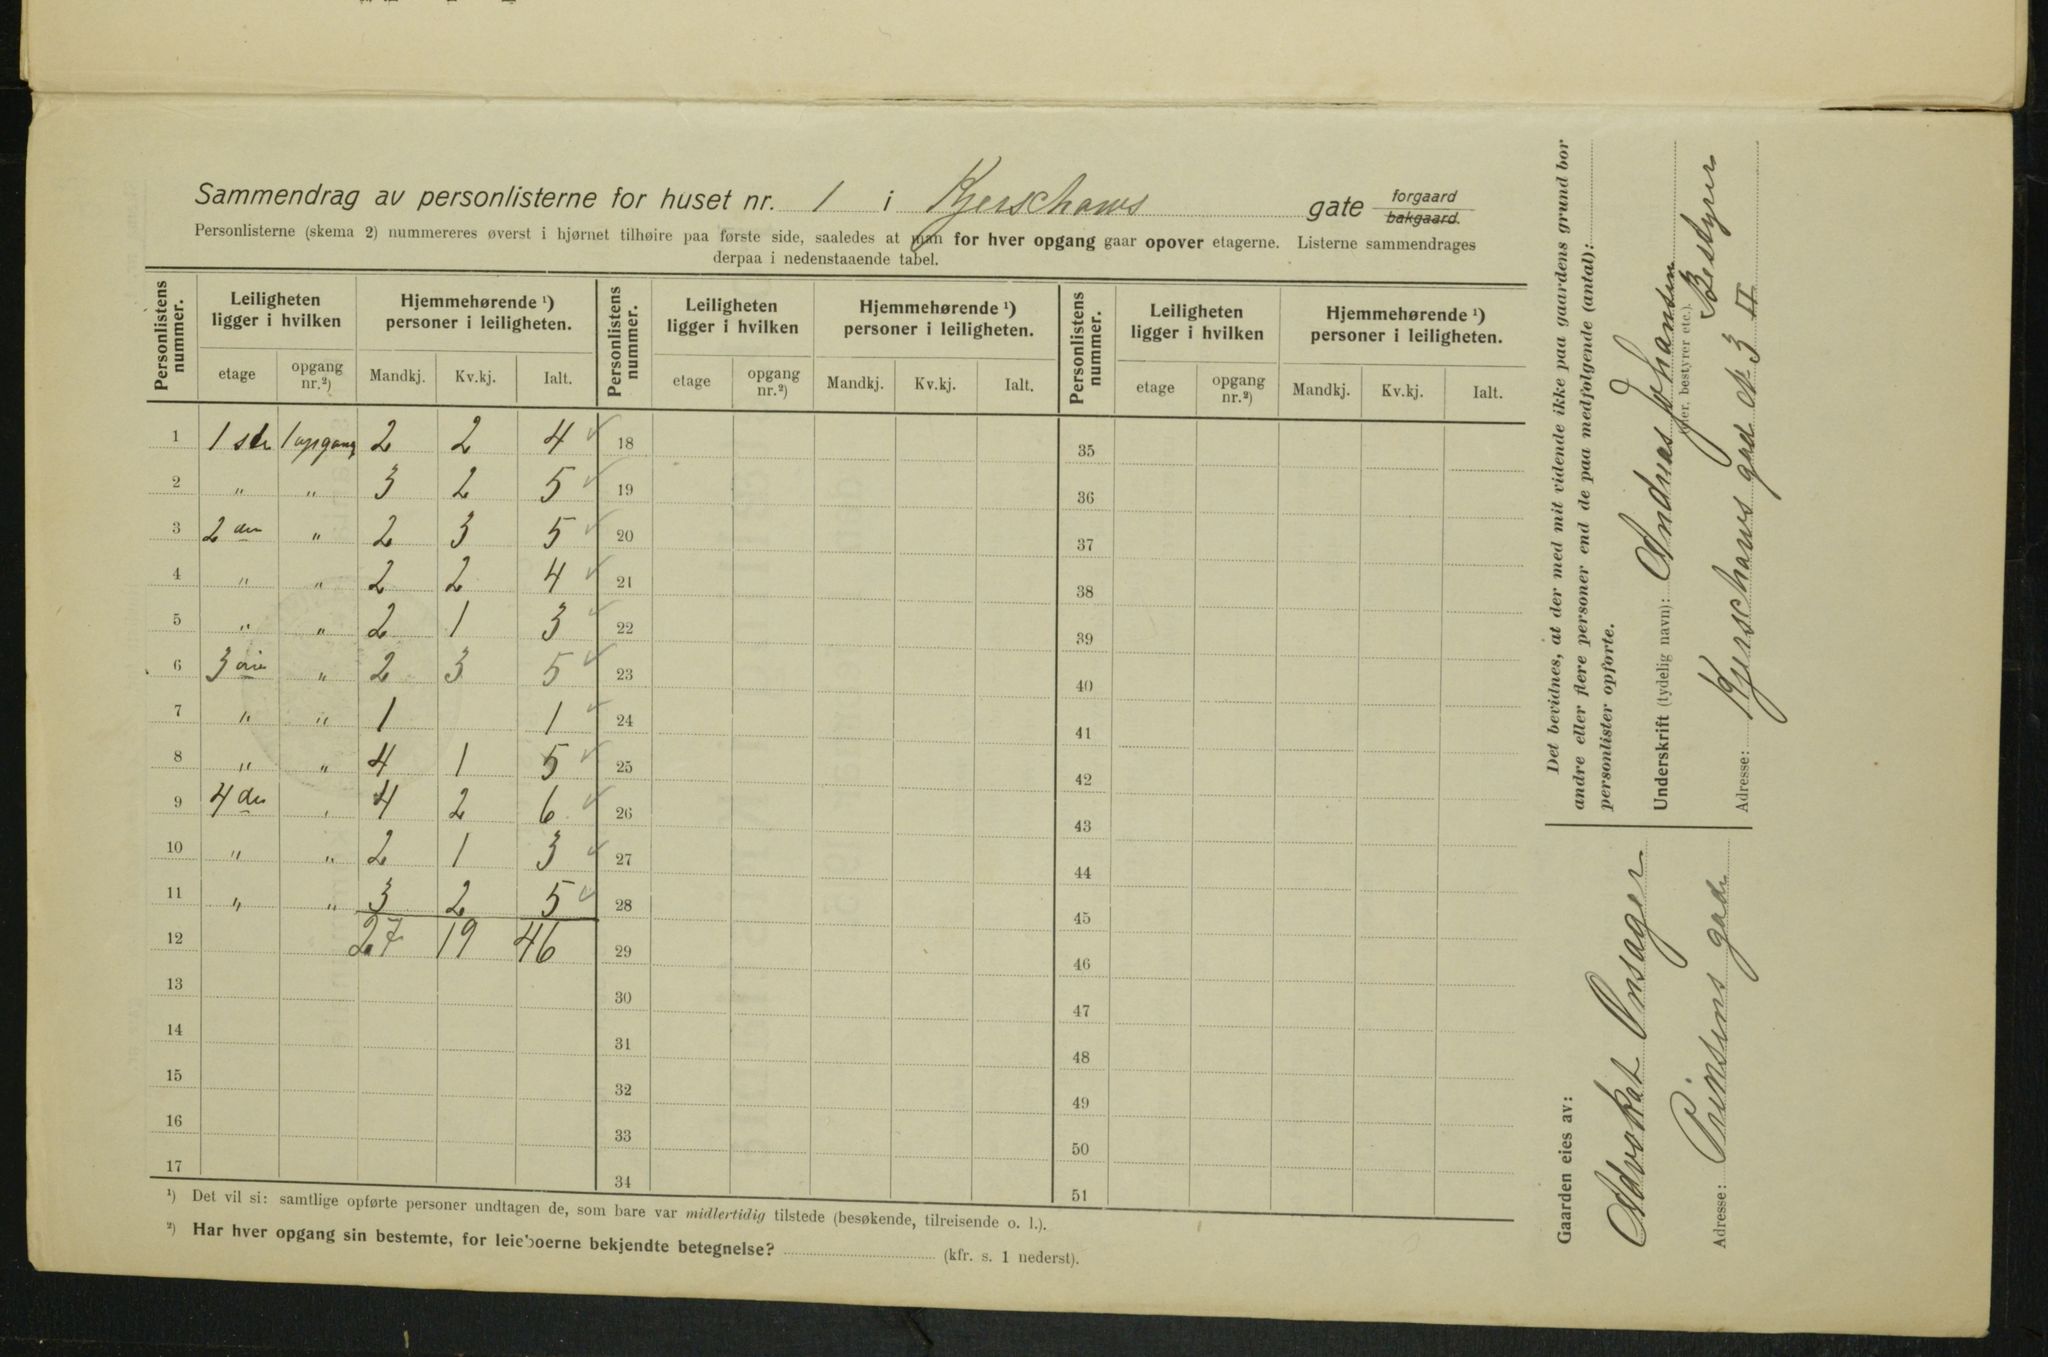 Sammendrag av personlisterne for huset nr. 1 i Kjerschows gate forgaard bakgaard.
Personlisterne (skema 2) nummereres øverst i hjørnet tilhøire paa første side, saaledes at man for hver opgang gaar opover etagerne. Listerne sammendrages
derpaa i nedenstaaende tabel.
Personlistens nummer. Leiligheten ligger i hvilken Hjemmehørende ¹) personer i leiligheten. Personlistens nummer. Leiligheten ligger i hvilken Hjemmehørende ¹) personer i leiligheten. Personlistens nummer. Leiligheten ligger i hvilken Hjemmehørende ¹) personer i leiligheten.
etage opgang nr.²) Mandkj. Kv.kj. Ialt. etage opgang nr.²) Mandkj. Kv.kj. Ialt. etage opgang nr.²) Mandkj. Kv.kj. Ialt.
1 1 ste 1 opgang 2 2 4 ✓ 18 35
2 " " 3 2 5 ✓ 19 36
3 2 den " 2 3 5 ✓ 20 37
4 " " 2 2 4 ✓ 21 38
5 " " 2 1 3 ✓ 22 39
6 3 die " 2 3 5 ✓ 23 40
7 " " 1 1 ✓ 24 41
8 " " 4 1 5 ✓ 25 42
9 4 de " 4 2 6 ✓ 26 43
10 " " 2 1 3 ✓ 27 44
11 " " 3 2 5 ✓ 28 45
12 27 19 46 29 46
13 30 47
14 31 48
15 32 49
16 33 50
17 34 51
¹) Det vil si: samtlige opførte personer undtagen de, som bare var midlertidig tilstede (besøkende, tilreisende o. l.).
²) Har hver opgang sin bestemte, for leieboerne bekjendte betegnelse? (kfr. s. 1 nederst).
Det bevidnes, at der med mit vidende ikke paa gaardens grund bor
andre eller flere personer end de paa medfølgende (antal):
personlister opførte.
Underskrift (tydelig navn): Andreas Johansen
(eier, bestyrer etc.). Bestyrer
Adresse: Kjerschows gad N 3 II
Gaarden eies av:
Advokat Onsager
Adresse: Prinsens gade